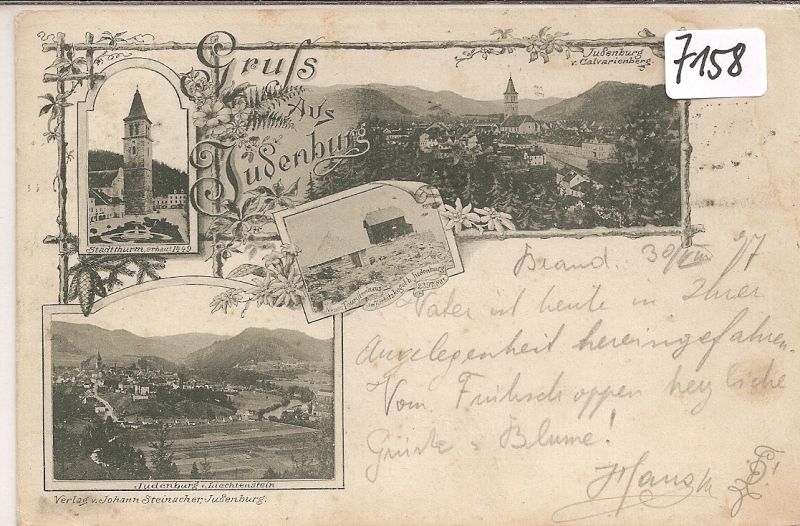 7158
Gruss
Aus
Judenburg
Judenburg
v. Calvarienberg.
Stadtthurm, erbaut 1449
Judenburg v. Liechtenstein
Verlag v. Johann Steinacher, Judenburg.
Brand. 30/VIII 97
Vater ist heute in Ihrer
Angelegenheit hereingefahren.
Vom Frühschoppen herzliche
Grüße Blume!
Hans